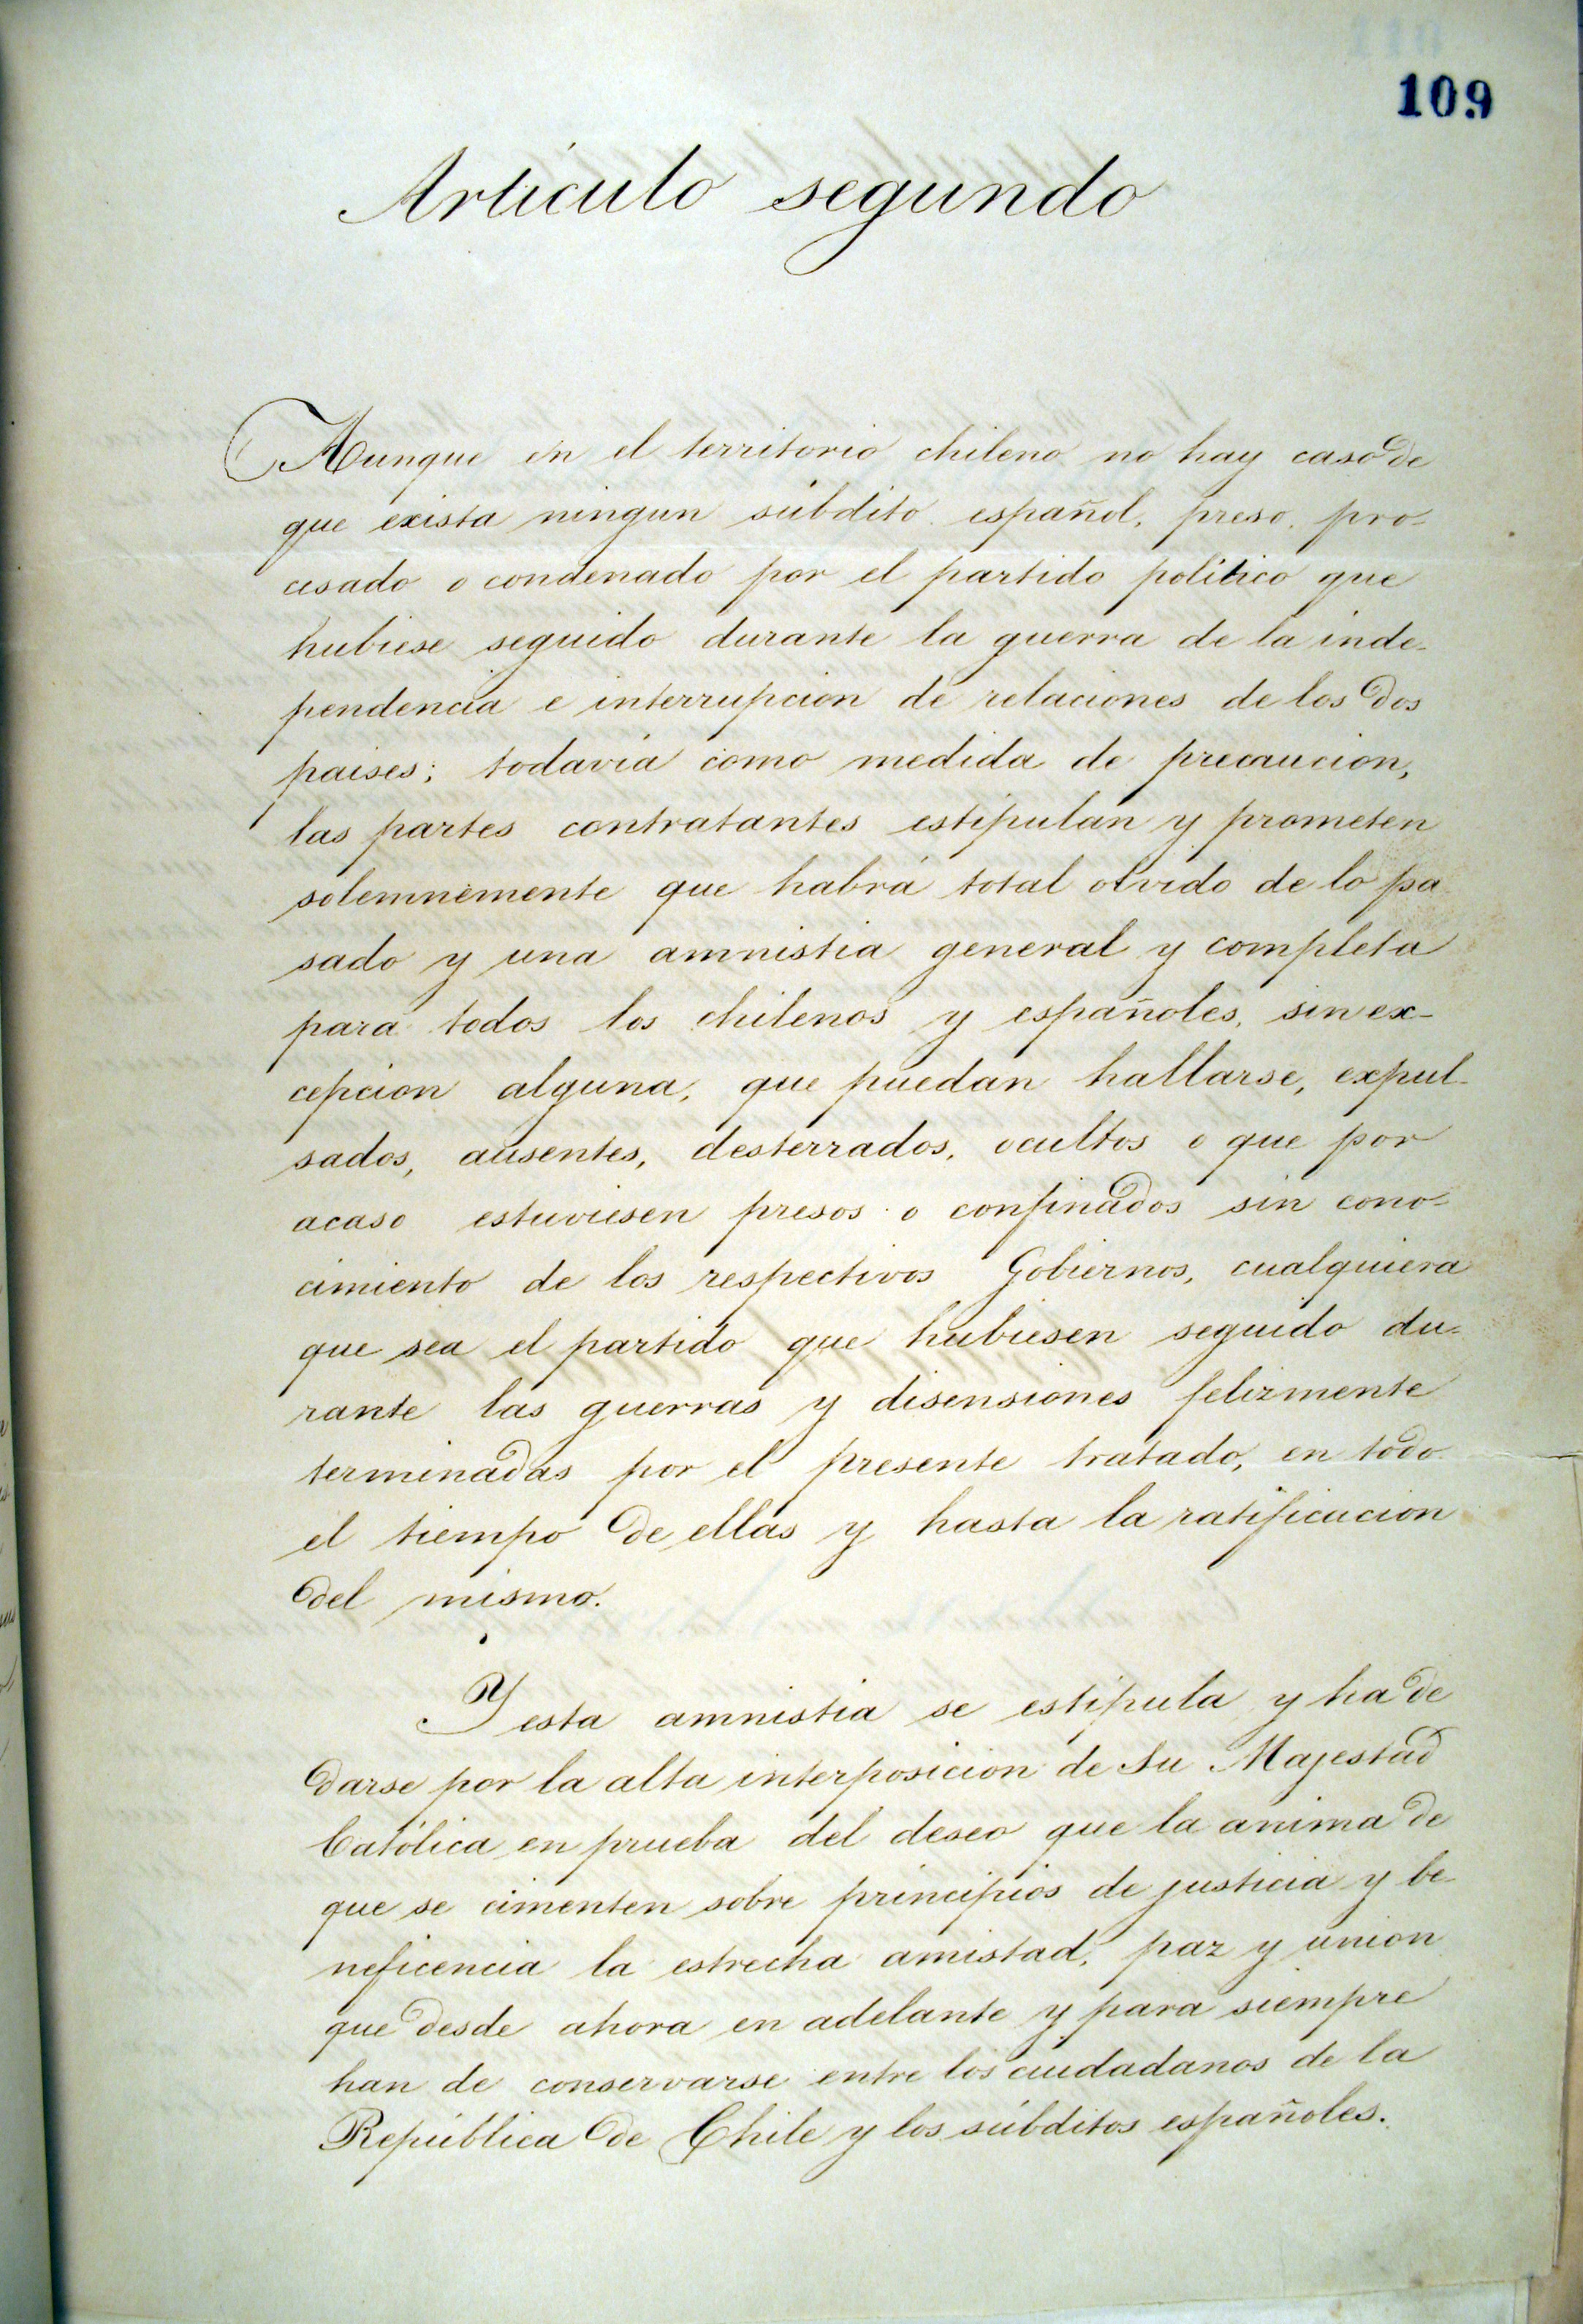 109
Artículo segundo
Aunque en el territorio chileno no hay caso de
que exista ningun súbdito español, preso, pro-
cesado o condenado por el partido politico que
hubiese seguido durante la guerra de la inde-
pendencia e interrupcion de relaciones de los dos
paises; todavía como medida de precaucion,
las partes contratantes estipulan y prometen
solemnemente que habrá total olvido de lo pa
sado y una amnistia general y completa
para todos los chilenos y españoles, sin ex-
cepcion alguna, que puedan hallarse, expul-
sados, ausentes, desterrados, ocultos o que por
acaso estuviesen presos o confinados sin cono-
cimiento de los respectivos Gobiernos, cualquiera
que sea el partido que hubiesen seguido du-
rante las guerras y disensiones felizmente
terminadas por el presente tratado, en todo
el tiempo de ellas y hasta la ratificacion
del mismo.
Y esta amnistia se estipula y ha de
darse por la alta interposicion de Su Majestad
Católica en prueba del deseo que la anima de
que se cimenten sobre principios de justicia y be-
neficencia la estrecha amistad, paz y union
que desde ahora en adelante y para siempre
han de conservarse entre los ciudadanos de la
República de Chile y los súbditos españoles.